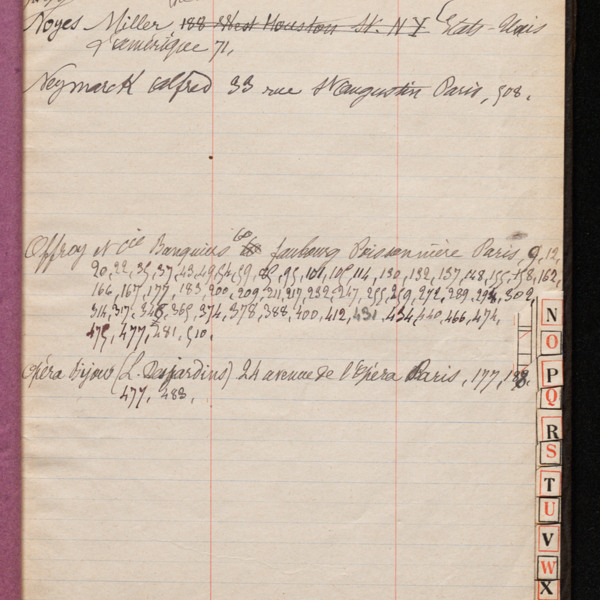 Noyes Miller 188 West Houston St. NY Etats-Unis
d'amérique 71,
Neymarck Alfred 33 rue St Augustin Paris, 508.
Offroy & Cie Banquiers 60 faubourg Poissonnière Paris, 9, 12,
20, 22, 35, 37, 43, 49, 54, 59, 95, 114, 130, 132, 137, 148, 155, 158, 162,
166, 167, 177, 183, 200, 209, 211, 217, 232, 247, 255, 259, 272, 289, 294, 302,
314, 317, 348, 365, 374, 378, 388, 400, 412, 431, 434, 440, 466, 474,
475, 477, 481, 510.
Opéra Bijou (L. Desjardins) 24 avenue de l'Opéra Paris, 177, 198.
477, 488.
N
O
P
Q
R
S
T
U
V
W
X